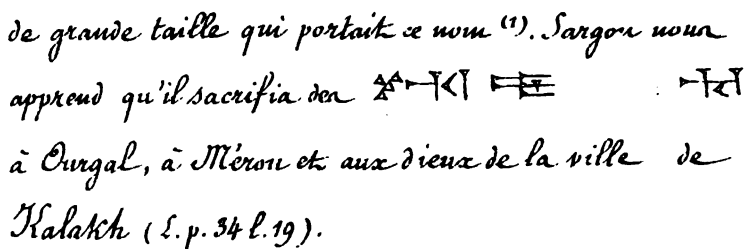 de grande taille qui portait ce nom (1). Sargon nous
apprend qu'il sacrifia des
à Ourgal, à Mérou et aux dieux de la ville de
Kalakh (L. p. 34 l. 19).